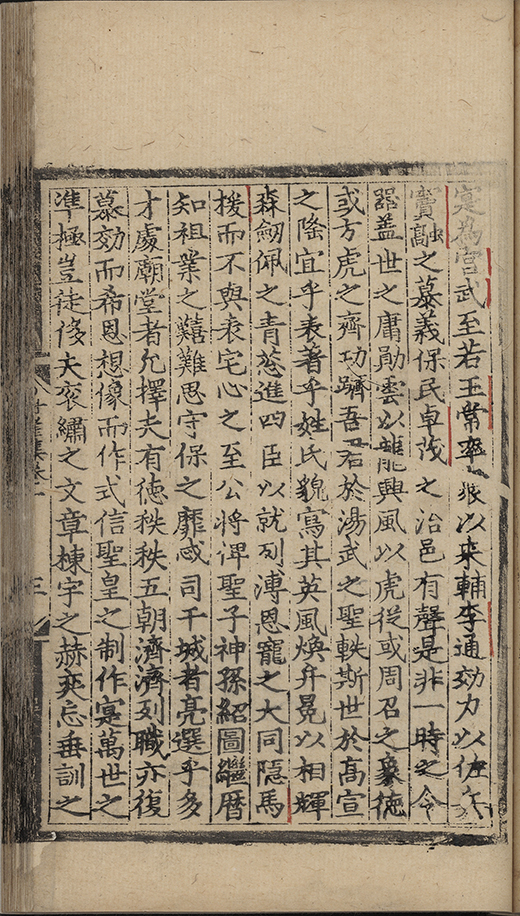 寔為宫武至若王常率以来輔李通効力以佐
竇融之慕義保民卓茂之治邑有聲是非一時之令
器盖世之庸勛雲以龍興風以虎從或周召之徳
或方虎之齊功躋吾君於湯武之聖軼斯世於髙宣
之隆宜乎表著乎姓氏貌寫其英風煥弁冕以相輝
森劒佩之青葱進四臣以就列溥恩寵之大同隱馬
援而不與表宅心之至公將俾聖子神孫紹圖繼暦
知祖業之艱難思守保之靡忒司干城者亮選乎多
才處廟堂者允擇夫有德秩秩五朝濟濟列職亦復
慕効而希恩想像而作式信聖皇之制作寔萬世之
準極豈徒侈夫衮繡之文章棟宇之赫奕忘垂訓之
三